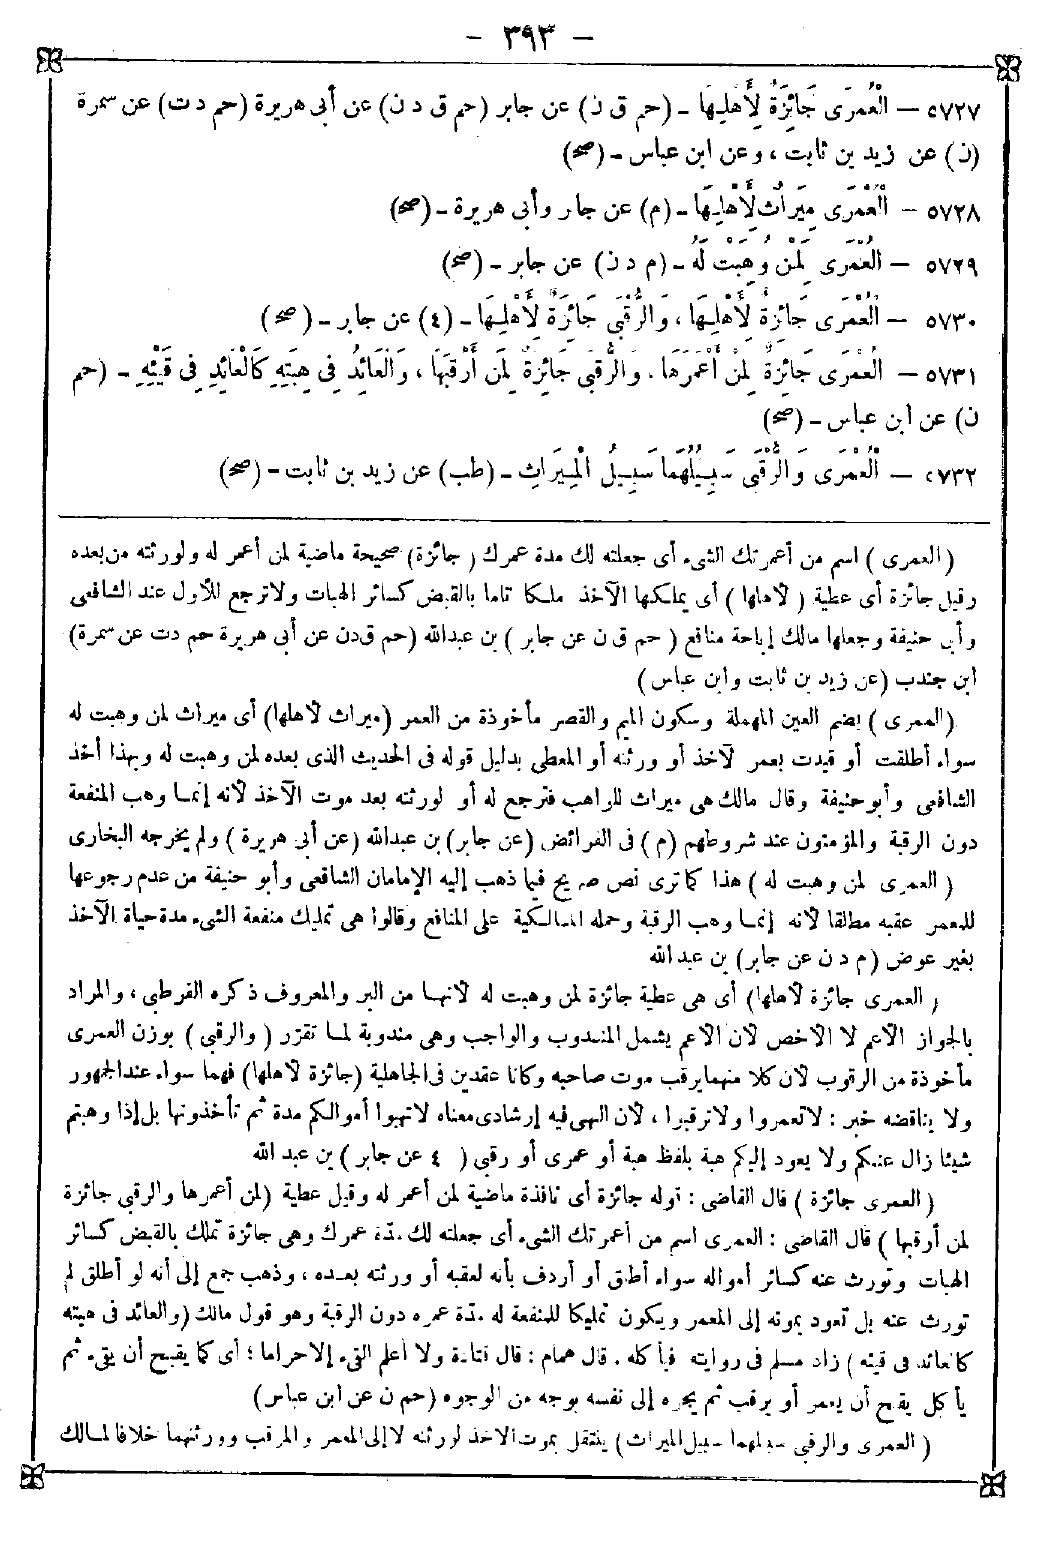 - ٣٩٣ -
٥٧٢٧ – الْعُمْرَى جَائِزَةٌ لِأَهْلِهَا - (حم ق ن) عن جابر (حم ق د ن) عن أبى هريرة (حم د ت) عن سمرة
(ن) عن زيد بن ثابت ، وعن ابن عباس - (صح)
٥٧٢٨ – الْعُمْرَى مِيرَاثٌ لِأَهْلِهَا - (م) عن جابر وأبى هريرة - (صح)
٥٧٢٩ – الْعُمْرَى لِمَنْ وُهِبَتْ لَهُ - (م د ن) عن جابر - (صح)
٥٧٣٠ – الْعُمْرَى جَائِزَةٌ لِأَهْلِهَا ، وَالرُّقْبَى جَائِزَةٌ لِأَهْلِهَا - (٤) عن جابر - (صح)
٥٧٣١ – الْعُمْرَى جَائِزَةٌ لِمَنْ أَعْمَرَهَا . وَالرُّقْبَى جَائِزَةٌ لِمَنْ أَرْقَبَهَا ، وَالْعَائِدُ فِى هِبَتِهِ كَالْعَائِدِ فِى قَيْئِهِ - (حم
ن) عن ابن عباس - (صح)
٥٧٣٢ – الْعُمْرَى وَالرُّقْبَى سَبِيلُهُمَا سَبِيلُ الْمِيرَاثِ - (طب) عن زيد بن ثابت - (صح)
( العمرى ) اسم من أعمرتك الشىء أى جعلته لك مدة عمرك ( جائزة) صحيحة ماضية لمن أعمر له ولورثته من بعده
وقيل جائزة أى عطية ( لأهلها ) أى يملكها الآخذ ملكا تاما بالقبض كسائر الهبات ولاترجع للأول عند الشافعى
وأبى حنيفة وجعلها مالك إباحة منافع ( حم ق ن عن جابر ) بن عبدالله (حم ق دن عن أبى هريرة حم دت عن سمرة)
ابن جندب (عن زيد بن ثابت وابن عباس )
(العمرى ) بضم العين المهملة وسكون الميم والقصر مأخوذة من العمر (ميراث لأهلها) أى ميراث لمن وهبت له
سواء أطلقت أو قيدت بعمر لآخذ أو ورثته أو المعطى بدليل قوله فى الحديث الذى بعده لمن وهبت له وبهذا أخذ
الشافعى وأبوحنيفة وقال مالك هى ميراث للواهب فترجع له أو لورثته بعد موت الآخذ لأنه إنما وهب المنفعة
دون الرقبة والمؤمنون عند شروطهم (م ) فى الفرائض (عن جابر) بن عبدالله (عن أبى هريرة ) ولم يخرجه البخارى
( العمرى لمن وهبت له ) هذا كما ترى نص صريح فيما ذهب إليه الإمامان الشافعى وأبو حنيفة من عدم رجوعها
للمعمر عقبه مطلقا لأنه إنما وهب الرقبة وحمله المالكية على المنافع وقالوا هى تمليك منفعة الشىء مدة حياة الآخذ
بغير عوض (م د ن عن جابر) بن عبد الله
( العمرى جائزة لأهلها) أى هى عطية جائزة لمن وهبت له لأنها من البر والمعروف ذكره القرطبى ، والمراد
بالجواز الأعم لا الأخص لأن الأعم يشمل المندوب والواجب وهى مندوبة لما تقرر ( والرقبى ) بوزن العمرى
مأخوذة من الرقوب لأن كلا منهما يرقب موت صاحبه وكانا عقدين فى الجاهلية (جائزة لأهلها) فهما سواء عند الجمهور
ولا يناقضه خبر : لاتعمروا ولاترقبوا ، لأن النهى فيه إرشادى معناه لاتهبوا أموالكم مدة ثم تأخذونها بل إذا وهبتم
شيئا زال عنكم ولا يعود إليكم هبة بلفظ هبة أو عمرى أو رقبى ( ٤ عن جابر ) بن عبد الله
( العمرى جائزة ) قال القاضى : قوله جائزة أى نافذة ماضية لمن أعمر له وقيل عطية (لمن أعمرها والرقبى جائزة
لمن أرقبها ) قال القاضى : العمرى اسم من أعمرتك الشىء أى جعلته لك مدة عمرك وهى جائزة تملك بالقبض كسائر
الهبات وتورث عنه كسائر أمواله سواء أطلق أو أردف بأنه لعقبه أو ورثته بعده ، وذهب جمع إلى أنه لو أطلق لم
تورث عنه بل تعود بموته إلى المعمر ويكون تمليكا للمنفعة له مدة عمره دون الرقبة وهو قول مالك (والعائد فى هبته
كالعائد فى قيئه ) زاد مسلم فى روايته فيأكله . قال همام : قال قتادة ولا أعلم القىء إلاحراما ؛ أى كما يقبح أن يقىء ثم
يأكل يقبح أن يعمر أو يرقب ثم يجره إلى نفسه بوجه من الوجوه (حم ن عن ابن عباس)
( العمرى والرقبى سبيلهما سبيل الميراث) ينتقل بموت الآخذ لورثته لا إلى المعمر والمرقب وورثتهما خلافا لمالك